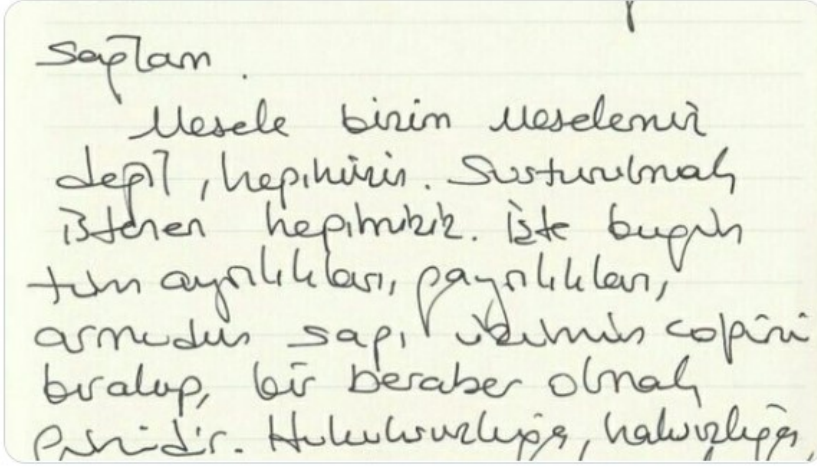 sağlam.
Mesele bizim meselemiz
değil, hepimizin. Susturulmak
istenen hepimiziz. İşte bugün
tüm ayrılıkları, gayrılıkları,
armudun sapı üzümün çöpünü
bırakıp, bir beraber olmak
günüdür. Hukuksuzluğa, haksızlığa,